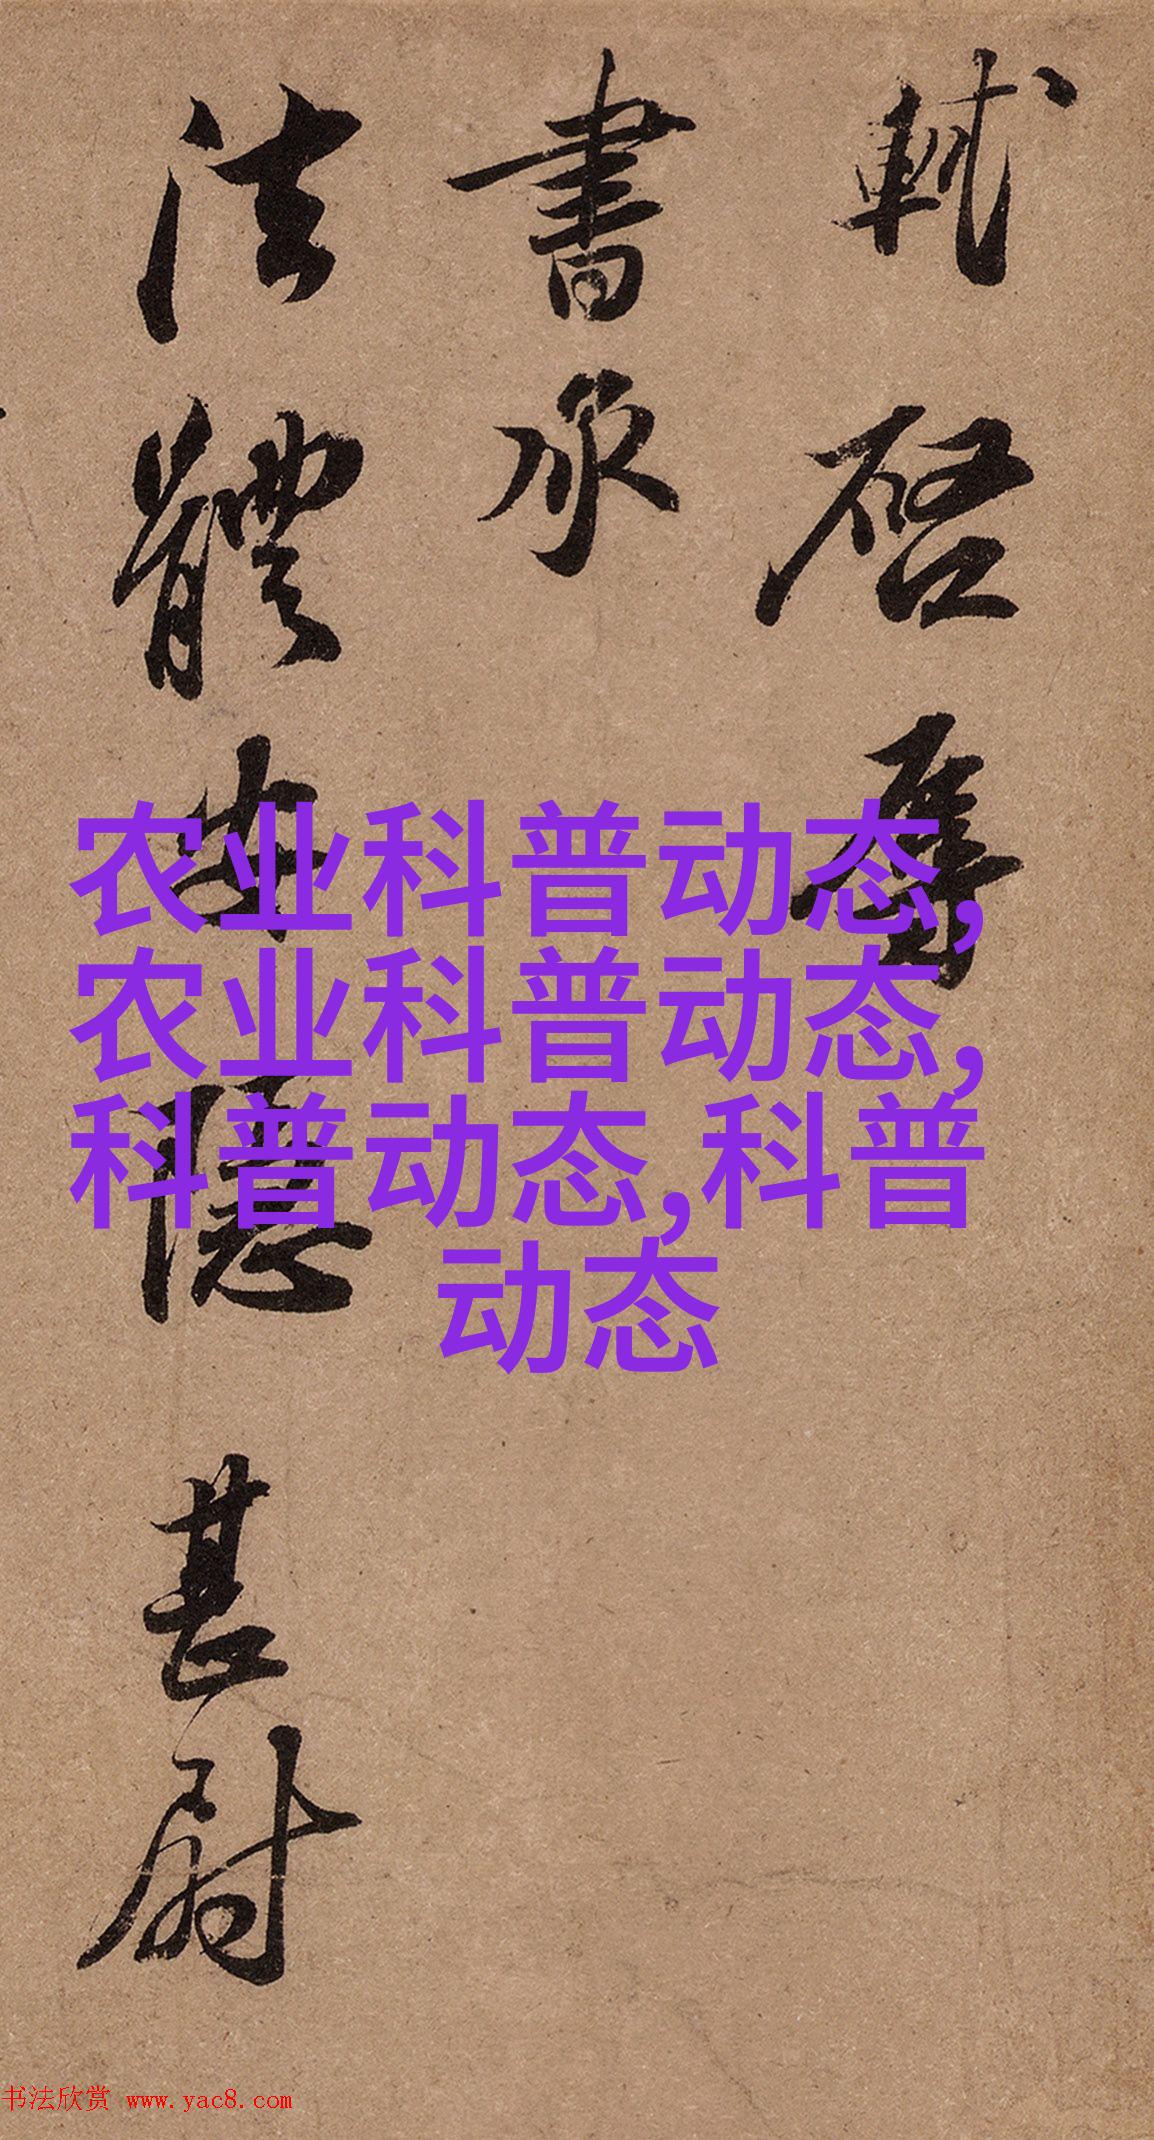 軾啓辱
書承
法體安隱甚慰
农业科普动态,
农业科普动态,
科普动态,科普
动态
书法欣赏 www.yac8.com